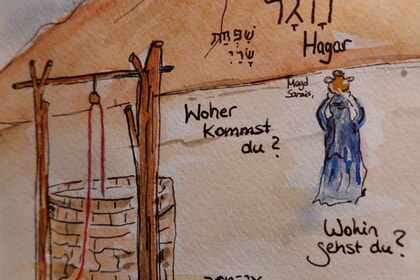 הָגָר
Hagar
שִׁפְחַת
שָׂרַי
Magd
Sarais,
Woher
kommst
du?
Wohin
gehst du?